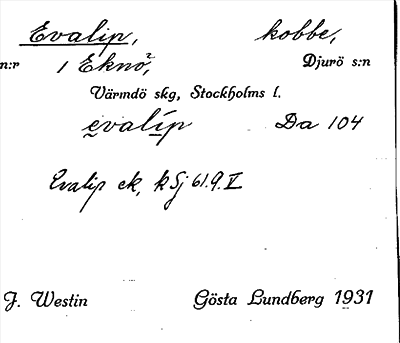 Evalip, kobbe,
n:r 1 Eknö, Djurö s:n
Värmdö skg, Stockholms l.
evalíp Da 104
Evalip ek, kSj 61.9.V
J. Westin Gösta Lundberg 1931